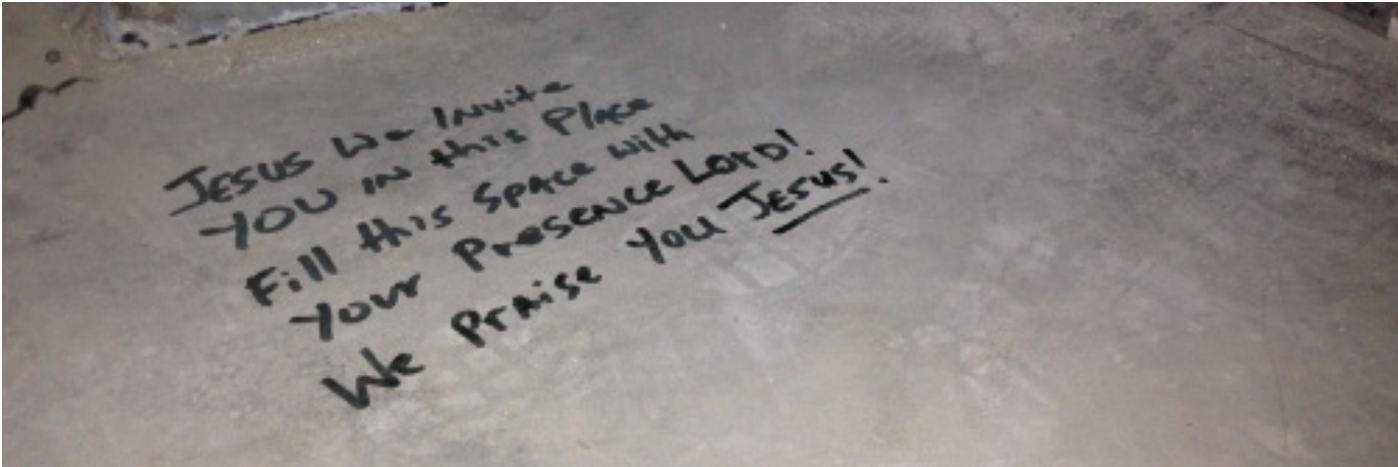 JESUS We Invite
YOU IN this PlAce
Fill this SpAce with
Your Presence LorD!
We PrAise You JESUS!